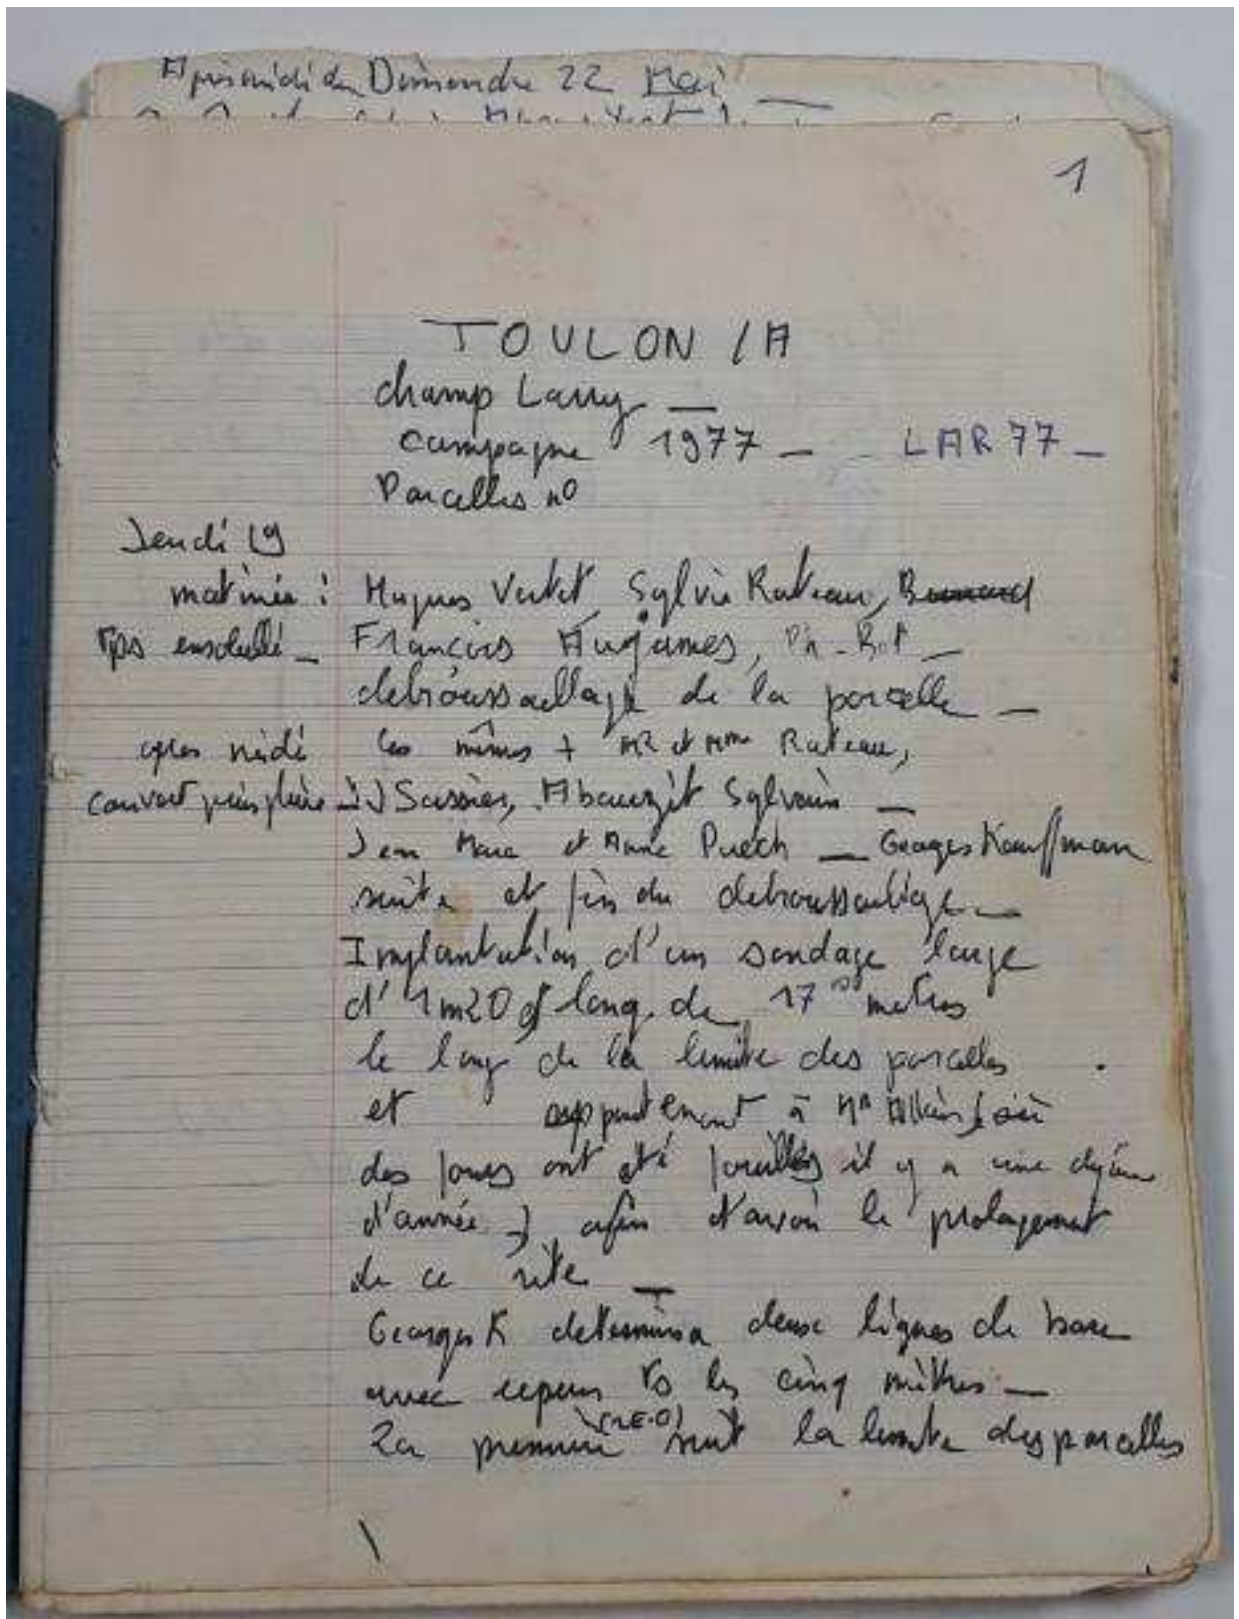 Après midi du Dimanche 22 Mai
1
TOULON /A
champ Larry
campagne 1977 - LAR 77 -
Parcelles n°
Jeudi 19
matinée : Hugues Vertet, Sylvie Rateau, Bernard
tps ensoleillé - François Augames, Ph - Bot -
debroussaillage de la parcelle -
apres midi les mêmes + MR et Mme Rateau,
couvert puis pluie Sassier, Abauzit Sylvain -
Jean Marie et Anne Puech - Georges Kauffman
suite et fin du debroussaillage -
Implantation d'un sondage large
d'1m20 et long de 17 metres
le long de la limite des parcelles
et appartenant à Mr où
des fours ont été fouillés il y a une dizaine
d'année afin d'avoir le prolongement
de ce site -
Georges K determina deux lignes de base
avec repères ts les cinq mètres -
La premiere (NE-O) suit la limite des parcelles